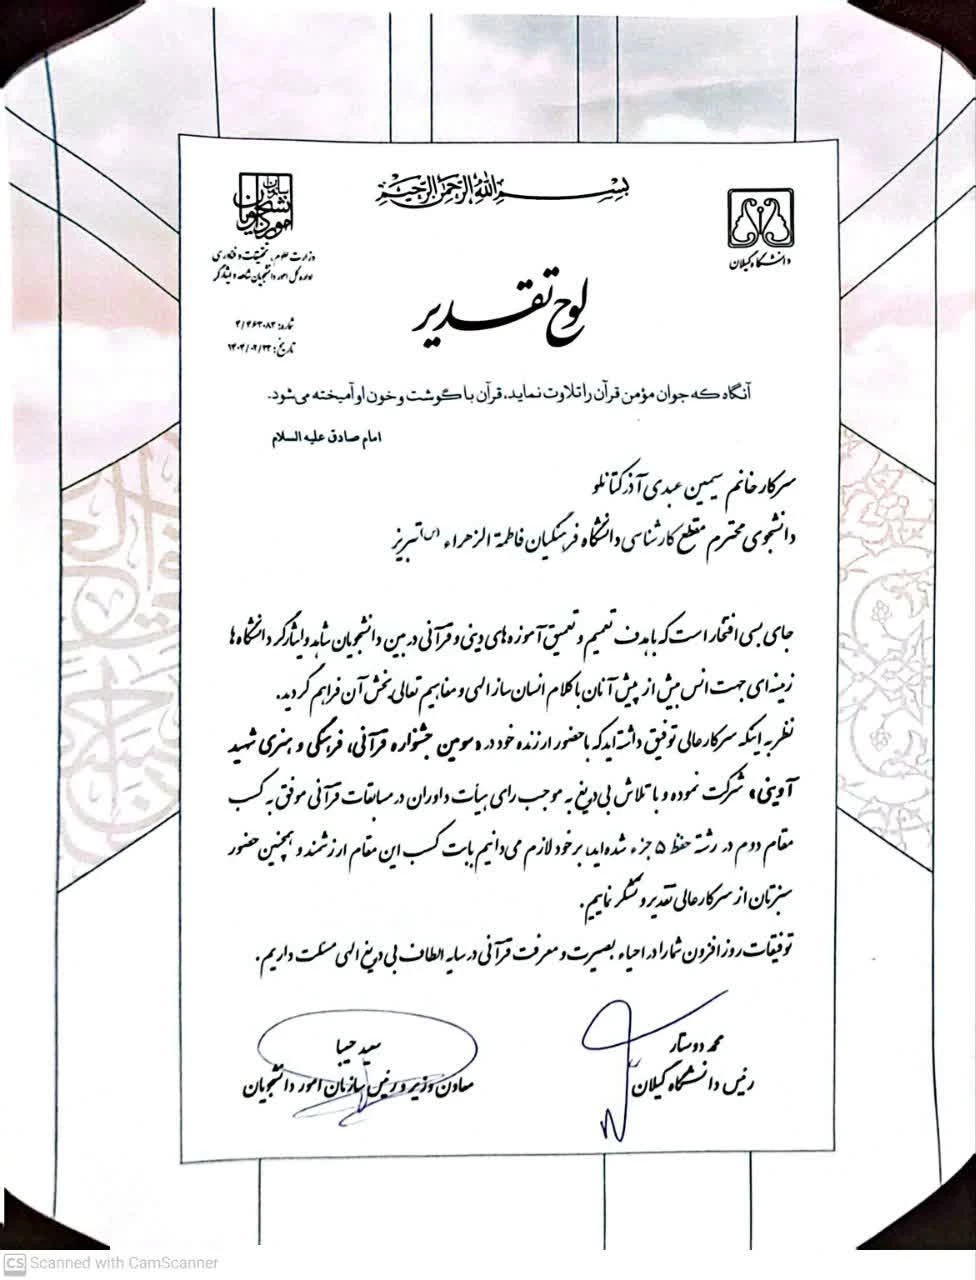 بسم الله الرحمن الرحیم
سازمان امور دانشجویان
وزارت علوم، تحقیقات و فناوری
اداره کل امور دانشجویان شاهد و ایثارگر
دانشگاه گیلان
لوح تقدیر
شماره: ۴/۴۶۳۰۸۲
تاریخ:
آنگاه که جوان مؤمن قرآن را تلاوت نماید، قرآن با گوشت و خون او آمیخته می‌شود.
امام صادق علیه السلام
سرکار خانم سیمین عبدی آذر کتانلو
دانشجوی محترم مقطع کارشناسی دانشگاه فرهنگیان فاطمة الزهراء (س) تبریز
جای بسی افتخار است که با هدف تعمیم و تعمیق آموزه‌های دینی و قرآنی در بین دانشجویان شاهد و ایثارگر دانشگاه‌ها
زمینه‌ای جهت انس بیش از پیش آنان با کلام انسان ساز الهی و مفاهیم تعالی بخش آن فراهم گردید.
نظر به اینکه سرکارعالی توفیق داشته‌اید که با حضور ارزنده خود در «سومین جشنواره قرآنی، فرهنگی و هنری شهید
آوینی» شرکت نموده و با تلاش بی‌دریغ به موجب رای هیأت داوران در مسابقات قرآنی موفق به کسب
مقام دوم در رشته حفظ ۵ جزء شده‌اید، بر خود لازم می‌دانیم بابت کسب این مقام ارزشمند و همچنین حضور
سبزتان از سرکارعالی تقدیر و تشکر نماییم.
توفیقات روزافزون شما را در احیاء بصیرت و معرفت قرآنی در سایه الطاف بی دریغ الهی مسئلت داریم.
محمد دوستار
رئیس دانشگاه گیلان
سعید حبیبا
معاون وزیر و رئیس سازمان امور دانشجویان
CS Scanned with CamScanner